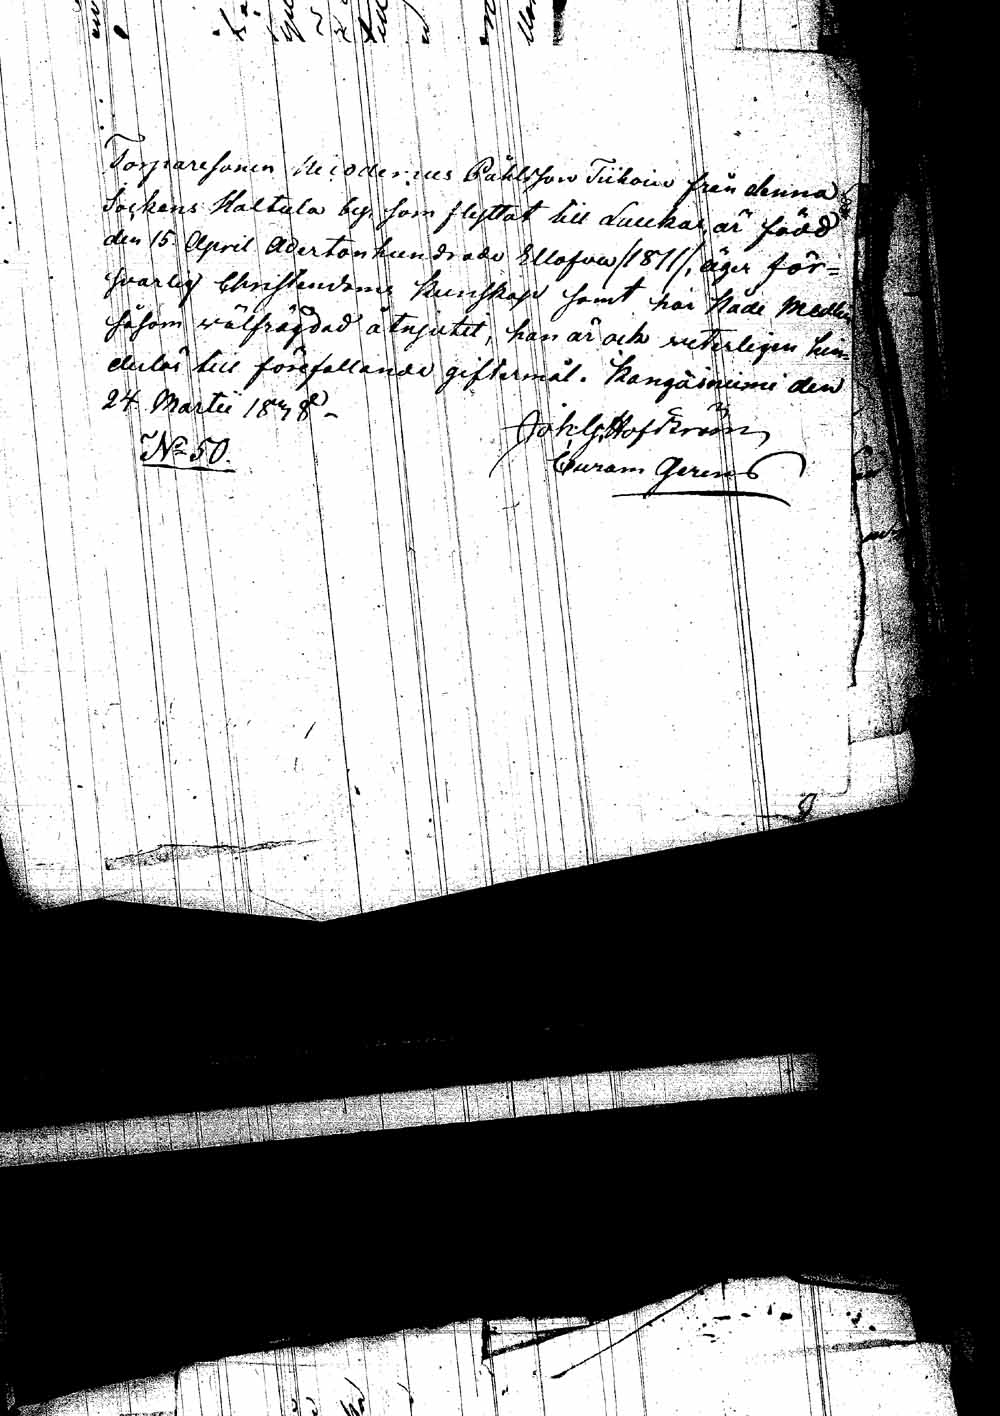 Torparesonen Nicodemus Påhlsson Tiihoin från denna
Sockens Haltula by, som flyttat till Laukas, är född
den 15 April Adertonhundrade Ellofva /1811/, äger för=
svarlig Christendoms kunskap samt har Nåde Medlen
såsom välfrägdad åtnjutit, han är och veterligen hin-
derlös till förefallande giftermål. Kangasniemi den
24 Martii 1838 -
Joh. G. Hofström
Curam Gerens
No 50.